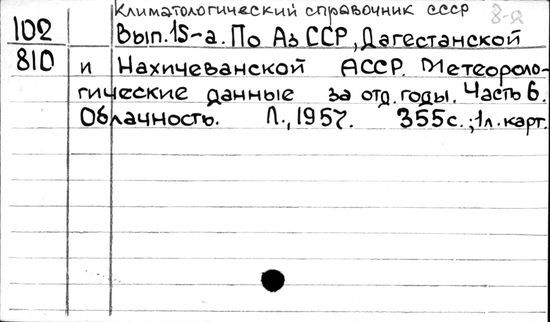 Климатологический справочник СССР 8-я
102 Вып. 15-а. По Аз ССР, Дагестанской
810 и Нахичеванской АССР. Метеороло-
гические данные за отд. годы. Часть 6.
Облачность. Л., 1957. 355с.; 1л. карт.